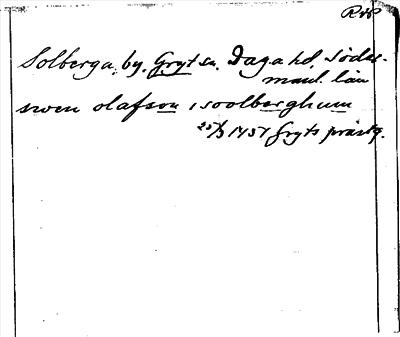 Solberga, by, Gryt sn, Daga hd, Söder-
manl. län
swen olafson i soolberghum
25/3 1451 Gryts prästg.